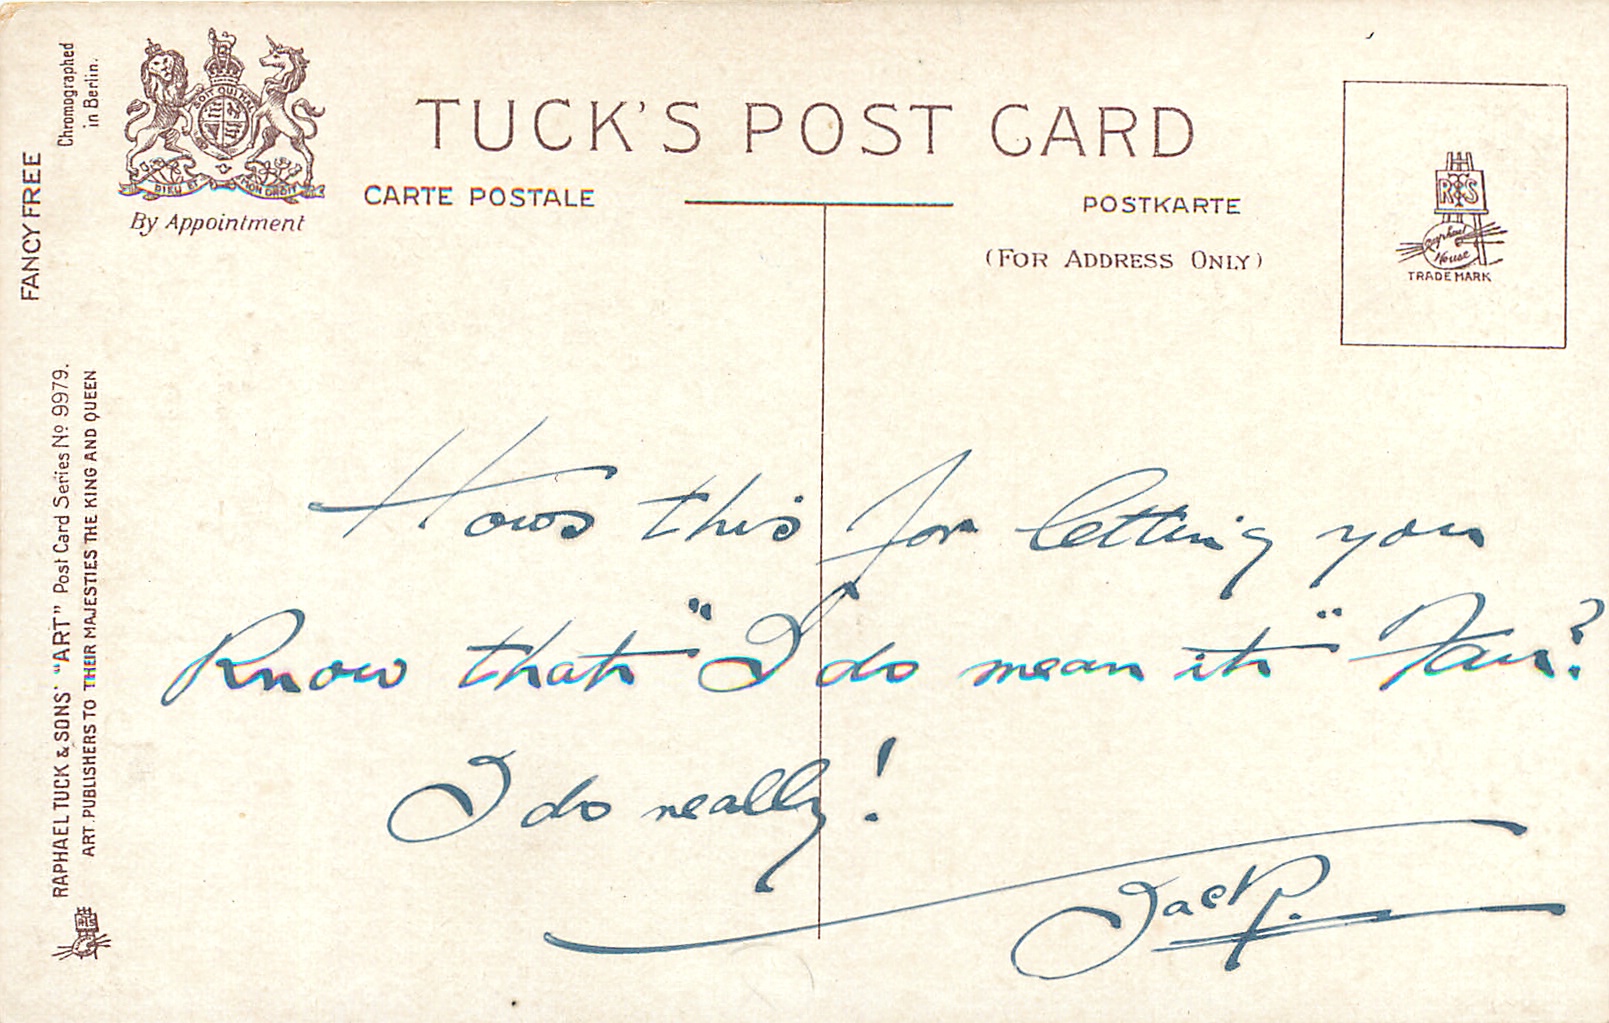 FANCY FREE
Chromographed
in Berlin.
SOIT QUI MAL
DIEU ET MON DROIT
By Appointment
TUCK'S POST CARD
CARTE POSTALE
POSTKARTE
(FOR ADDRESS ONLY)
R T S
Raphael
House
TRADE MARK
RAPHAEL TUCK & SONS' "ART" Post Card Series No 9979.
ART PUBLISHERS TO THEIR MAJESTIES THE KING AND QUEEN
Hows this for letting you
Know that "I do mean it"
I do really!
Jack P.